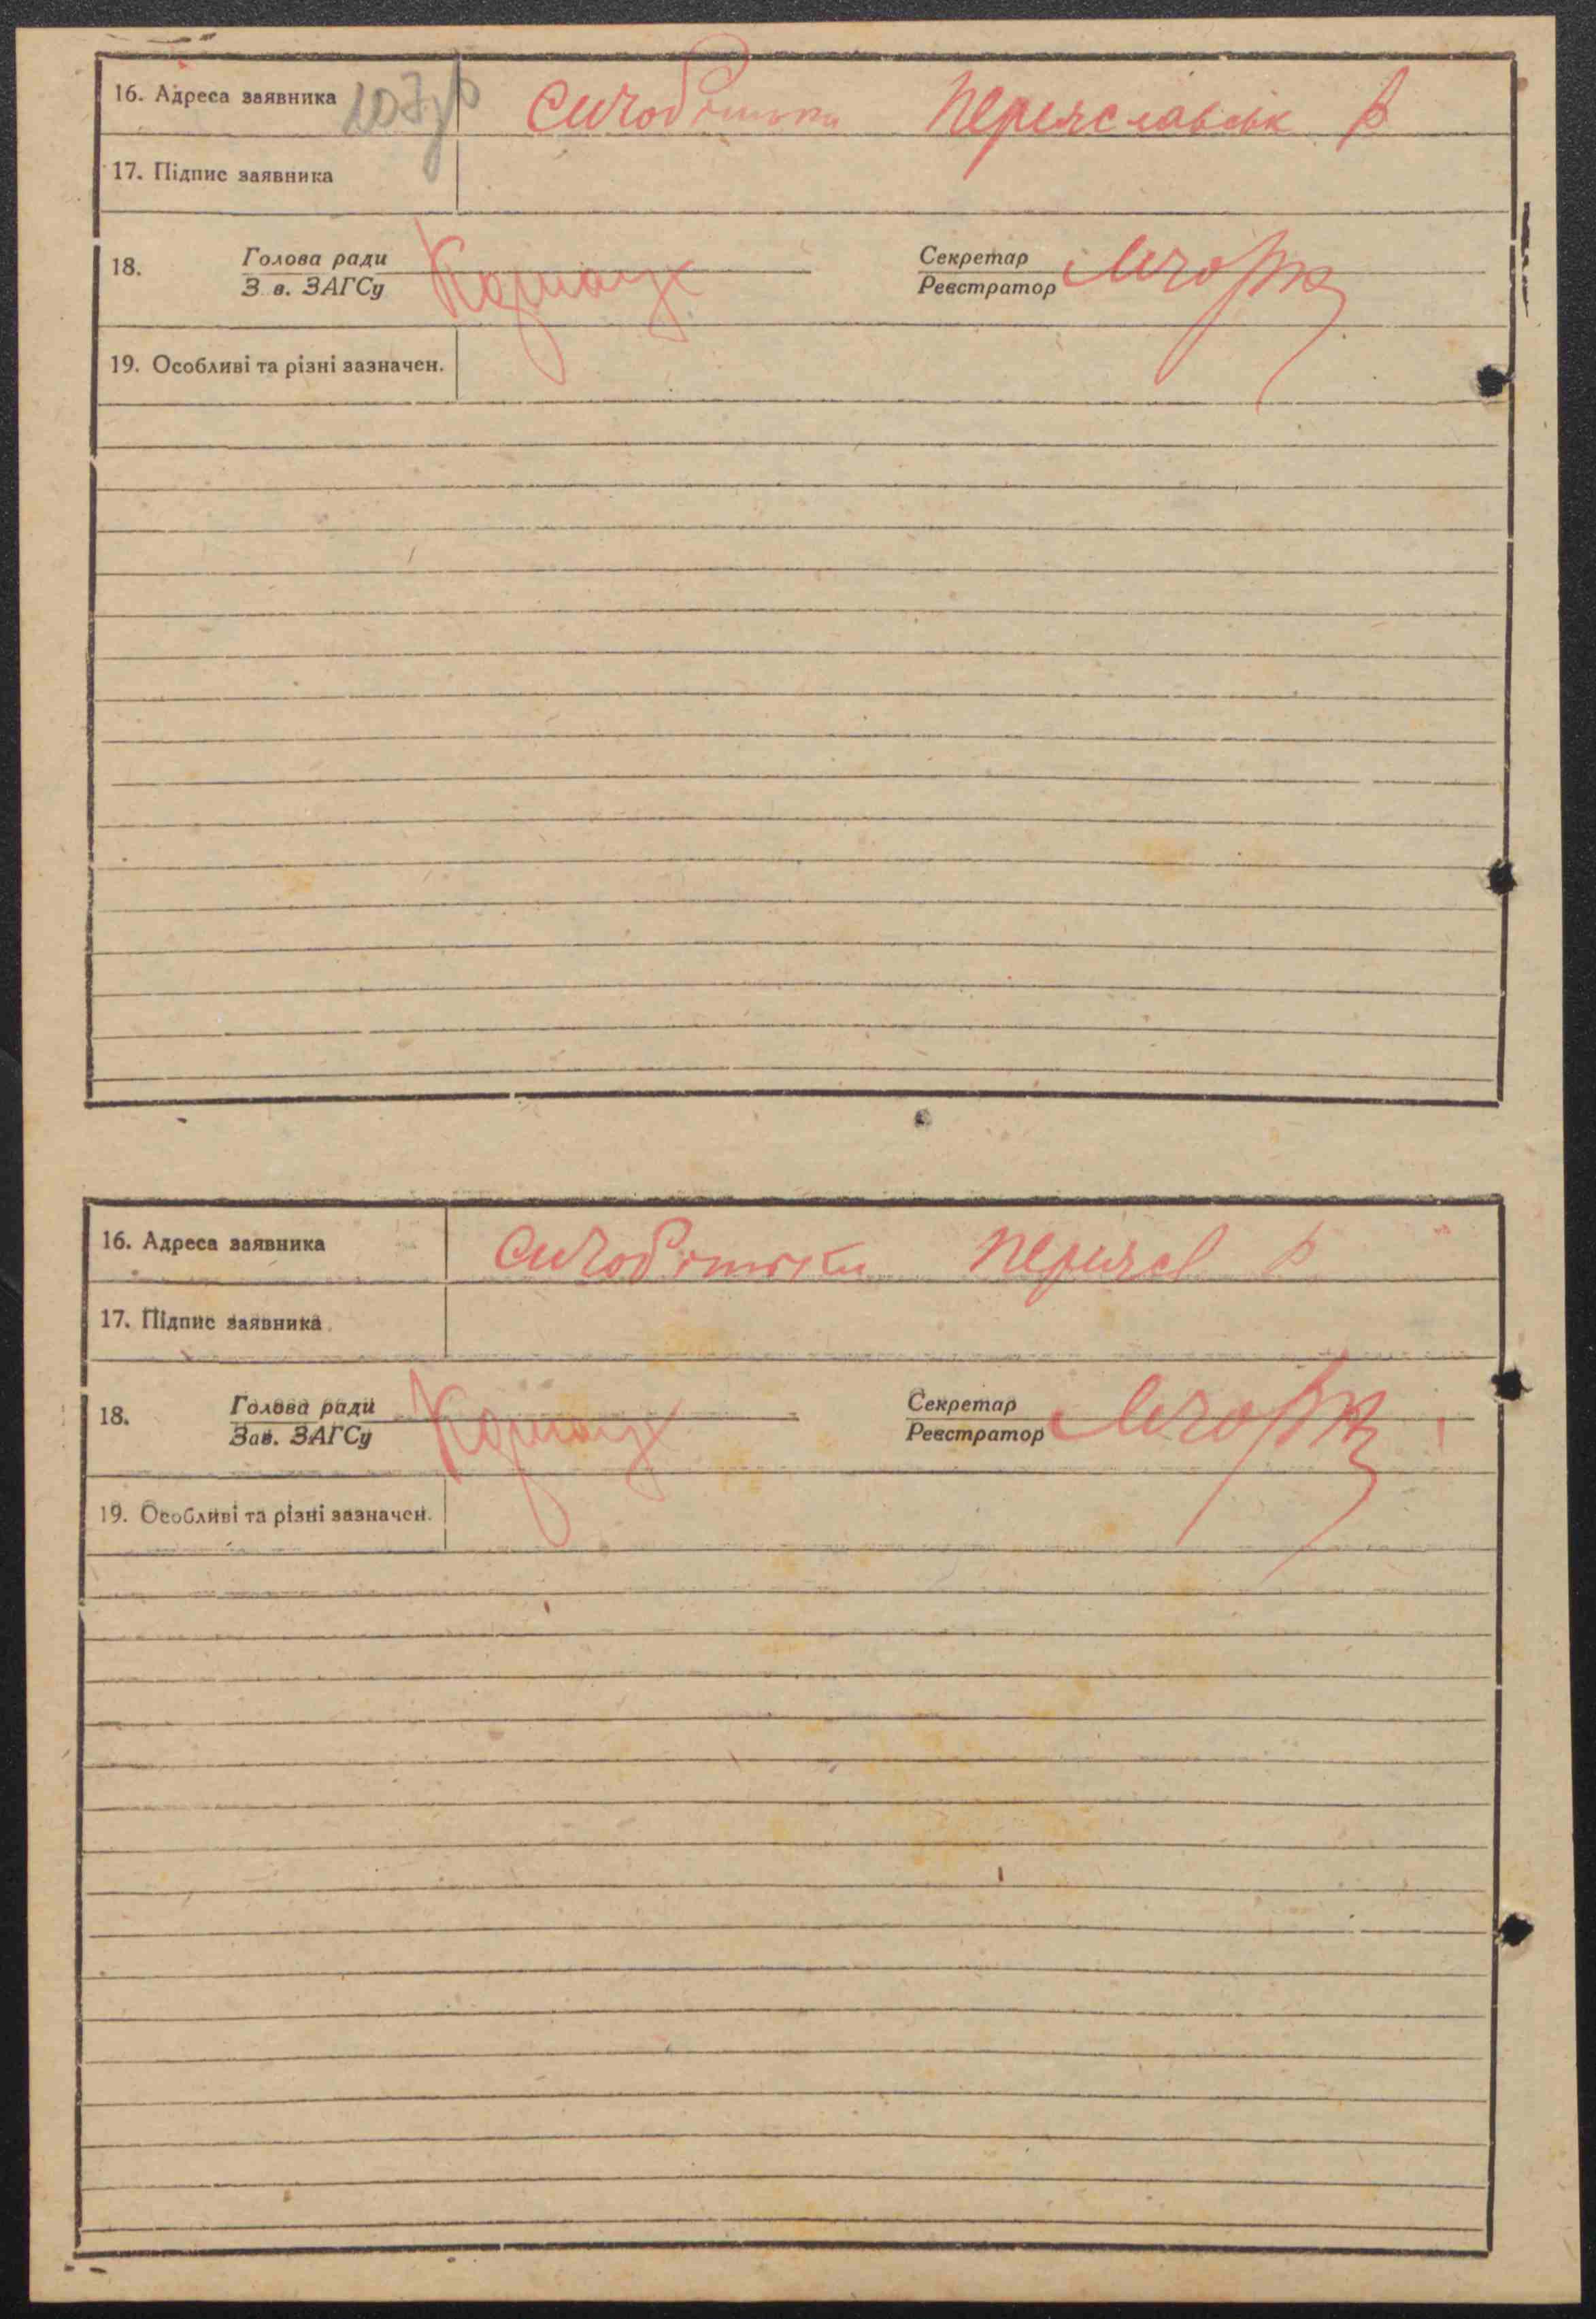 16. Адреса заявника 107зв Переяславськ р
17. Підпис заявника
18. Голова ради Секретар
З в. ЗАГСу Реєстратор
19. Особливі та різні зазначен.
16. Адреса заявника Переясл р
17. Підпис заявника
18. Голова ради Секретар
Зав. ЗАГСу Реєстратор
19. Особливі та різні зазначен.